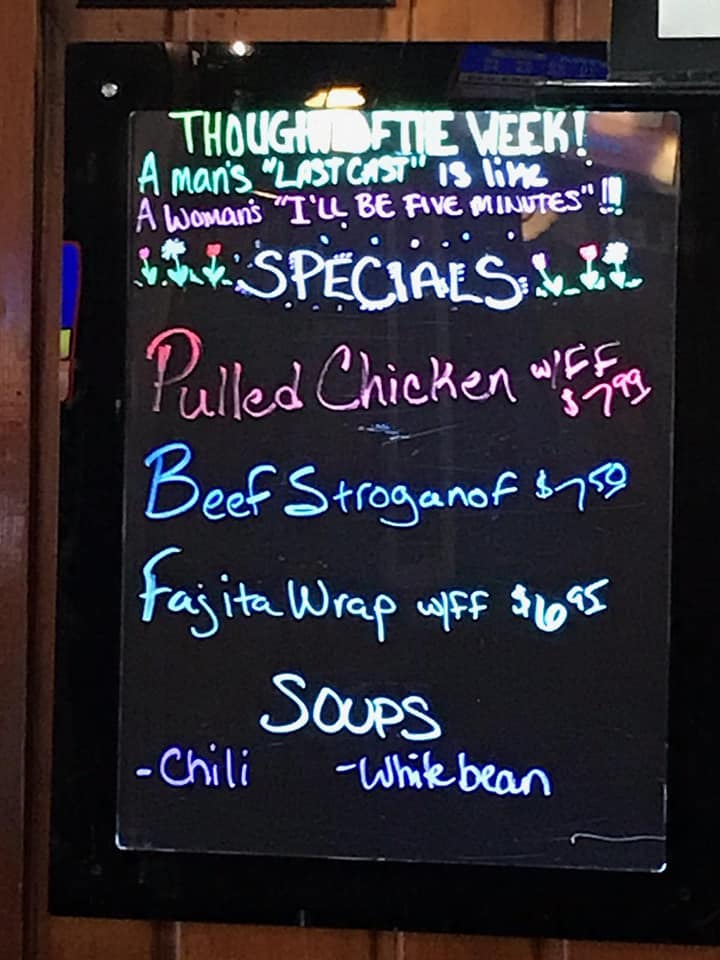 THOUGHT OF THE WEEK!
A man's "LAST CAST" is like
A Woman's "I'LL BE FIVE MINUTES"!!!
SPECIALS
Pulled Chicken w/FF $7.99
Beef Stroganof $7.50
Fajita Wrap w/FF $6.95
SOUPS
-Chili -White bean